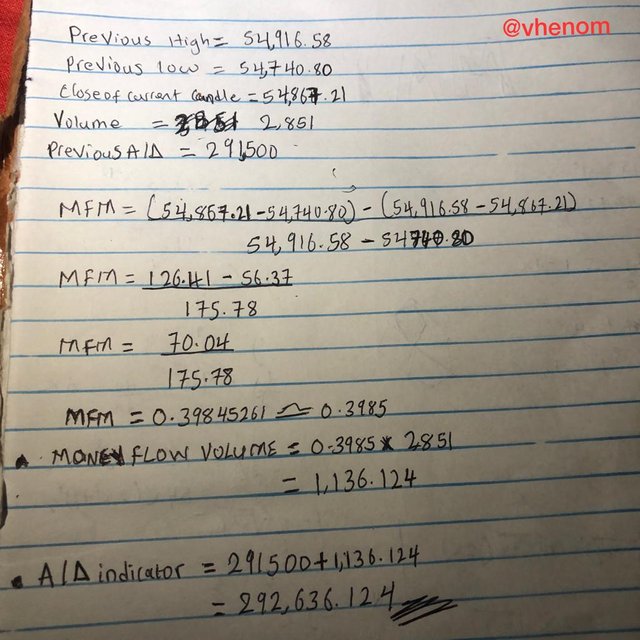 @vhenom
Previous High = 54,916.58
Previous low = 54,740.80
Close of current candle = 54,867.21
Volume = 2,851
Previous A/Δ = 291,500
MFM = (54,867.21 - 54,740.80) - (54,916.58 - 54,867.21)
54,916.58 - 54740.80
MFM = 126.41 - 56.37
175.78
MFM = 70.04
175.78
MFM = 0.39845261 ≃ 0.3985
• MONEY FLOW VOLUME = 0.3985 x 2851
= 1,136.124
• A/Δ indicator = 291500 + 1,136.124
= 292,636.124